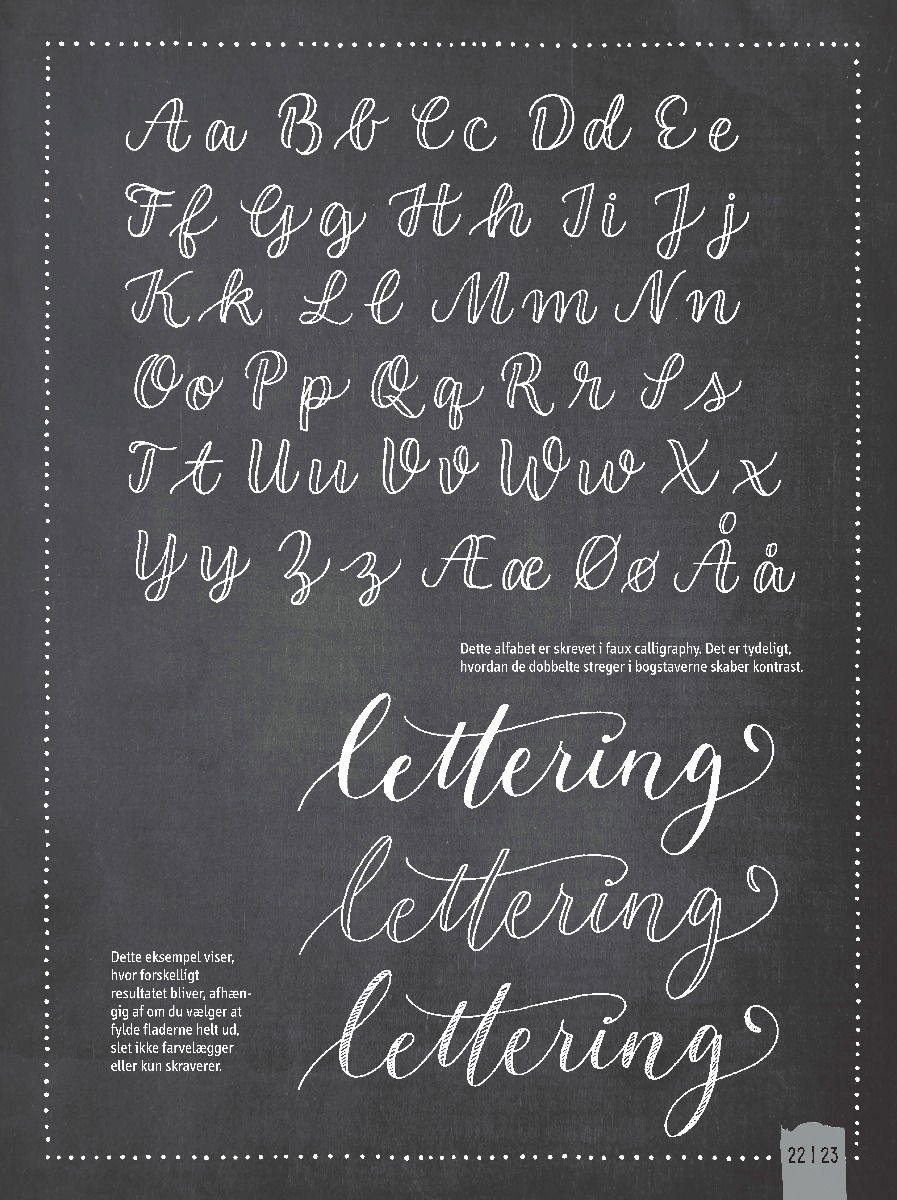 A a B b C c D d E e
F f G g H h I i J j
K k L l M m N n
O o P p Q q R r S s
T t U u V v W w X x
Y y Z z Æ æ Ø ø Å å
Dette alfabet er skrevet i faux calligraphy. Det er tydeligt,
hvordan de dobbelte streger i bogstaverne skaber kontrast.
lettering
lettering
lettering
Dette eksempel viser,
hvor forskelligt
resultatet bliver, afhæn-
gig af om du vælger at
fylde fladerne helt ud,
slet ikke farvelægger
eller kun skraverer.
22 | 23